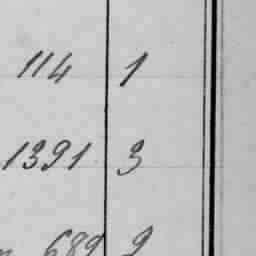 114 1
1391 3
689 9